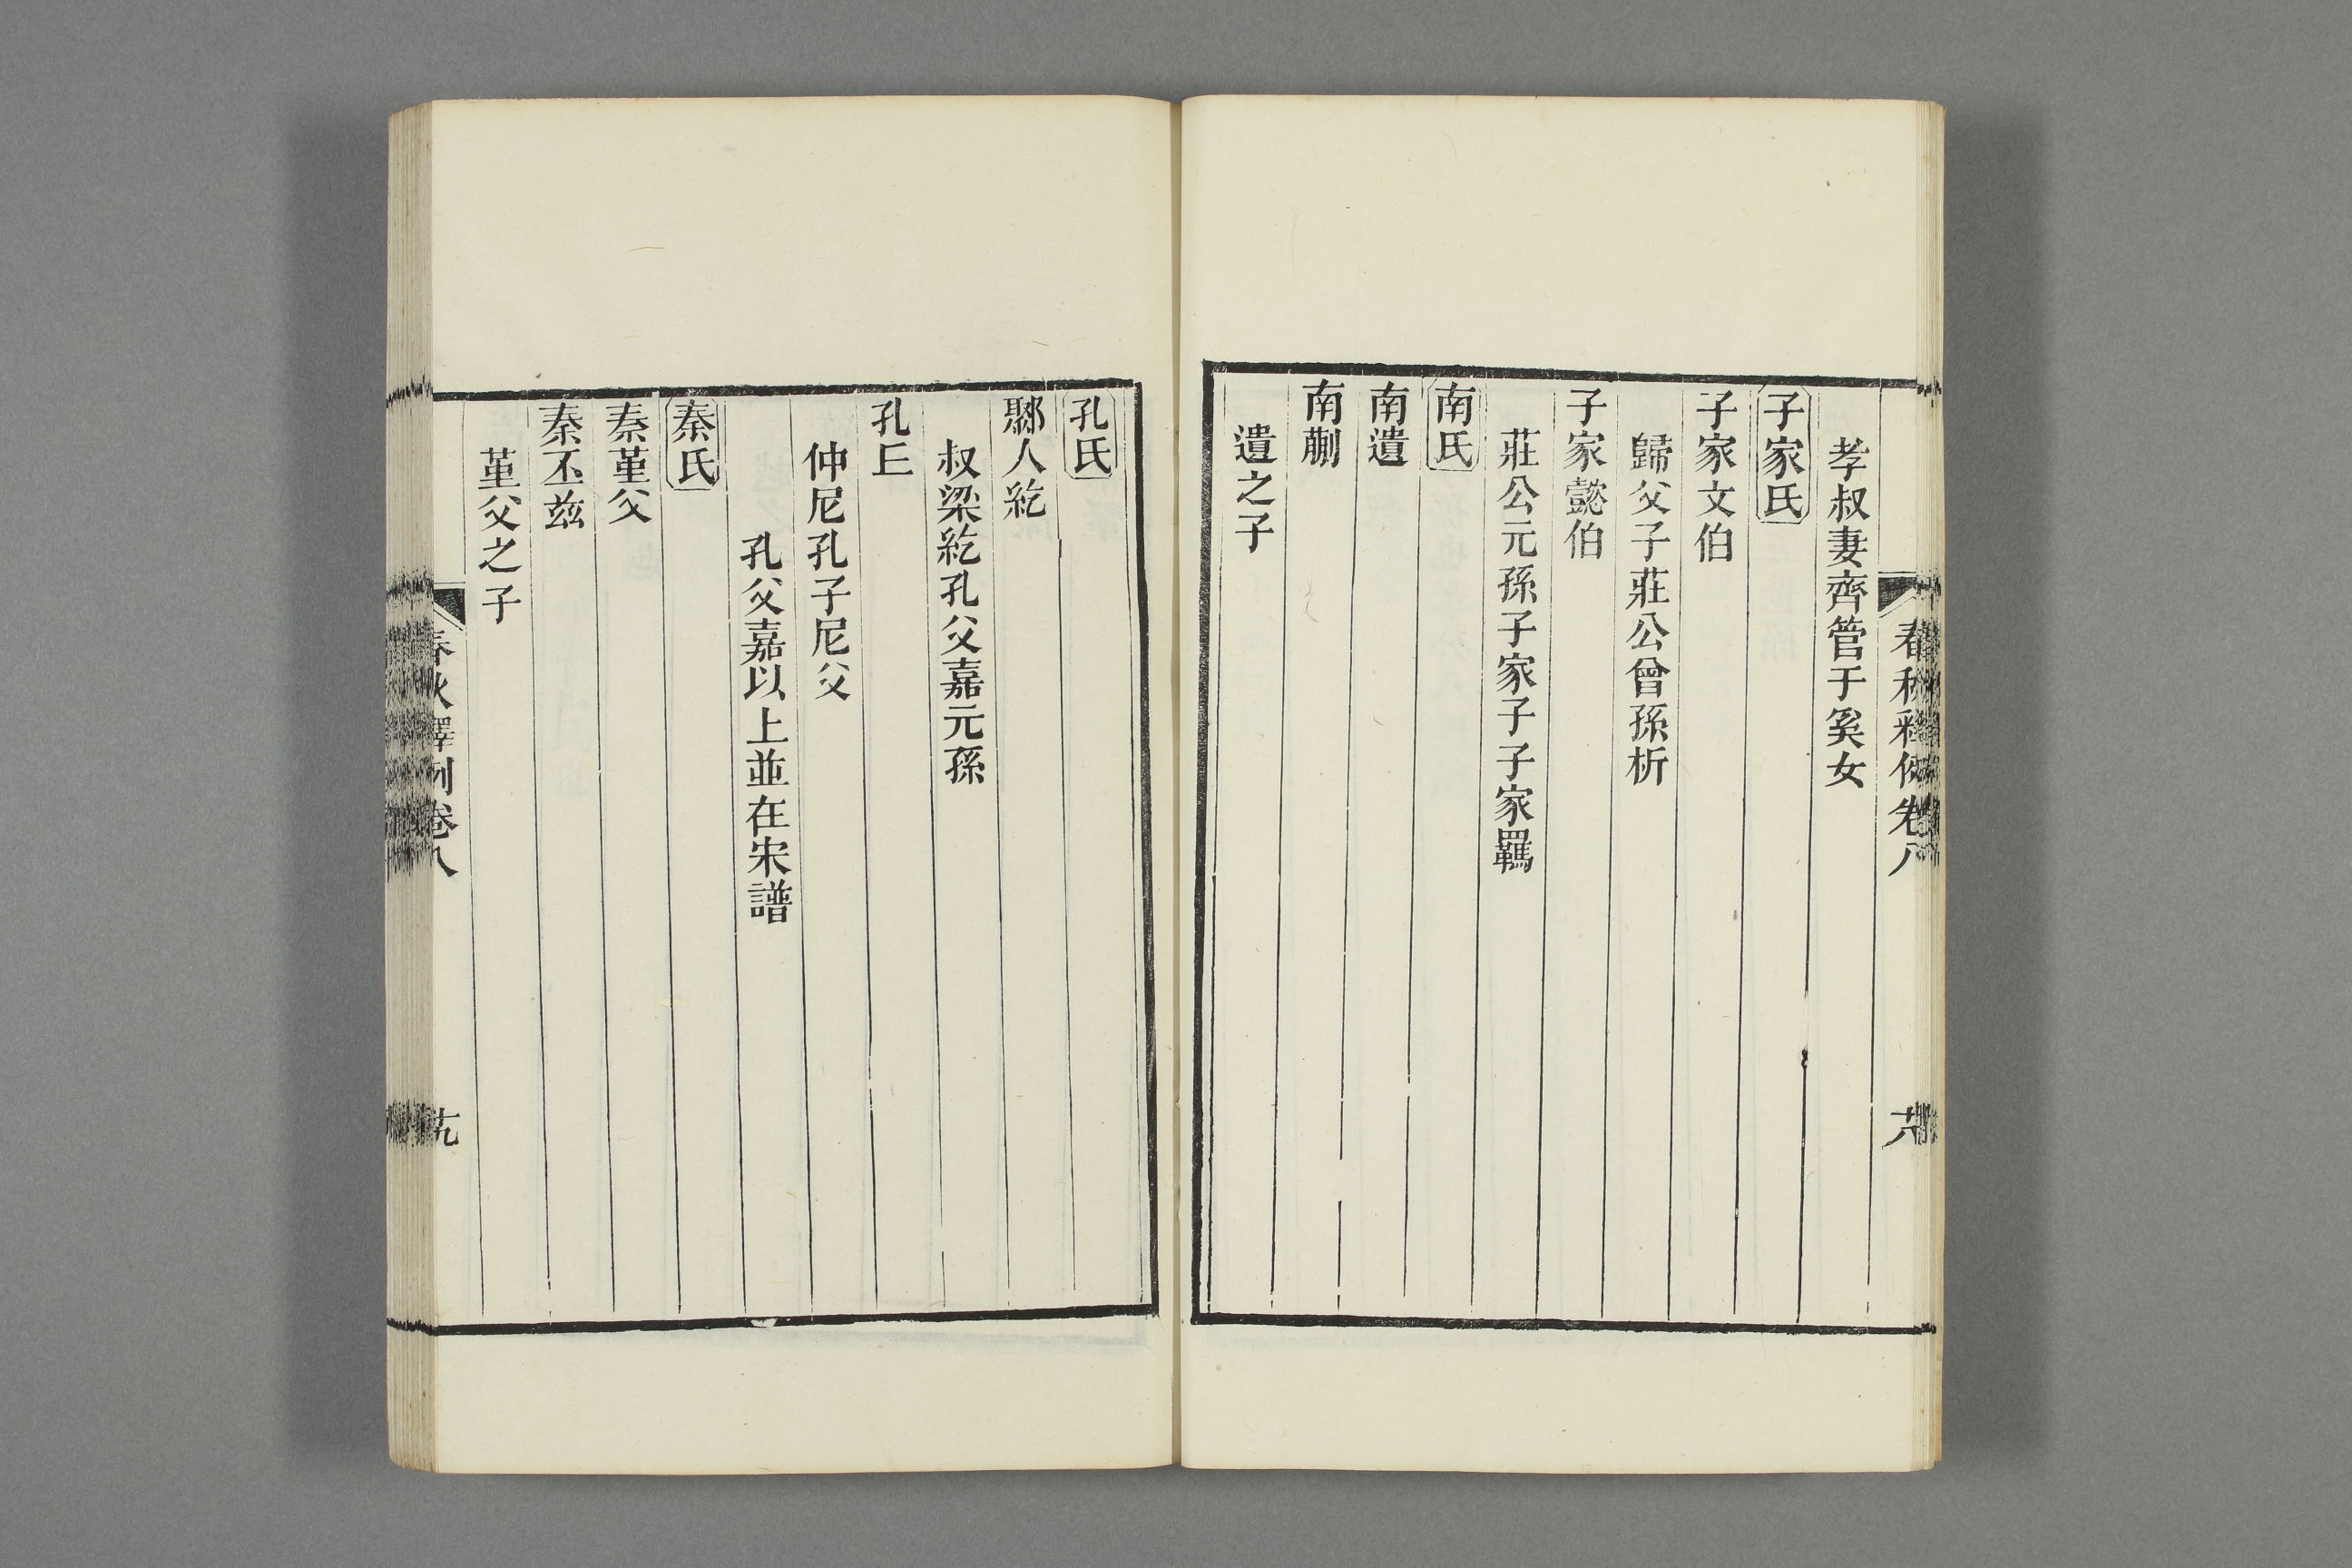 春秋釋例卷八
六
孝叔妻齊管于奚女
子家氏
子家文伯
歸父子莊公曾孫析
子家懿伯
莊公元孫子家子子家羈
南氏
南遺
南蒯
遺之子
孔氏
郰人紇
叔梁紇孔父嘉元孫
孔丘
仲尼孔子尼父
孔父嘉以上並在宋譜
秦氏
秦堇父
秦丕茲
堇父之子
春秋釋例卷八
九